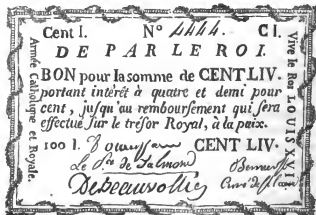 Cent I. N° 4444. C I.
DE PAR LE ROI.
BON pour la somme de CENT LIV.
portant intérêt à quatre et demi pour
cent, jusqu'au remboursement qui sera
effectué sur le trésor Royal, à la paix.
100 l. CENT LIV.
Le
De Beauvollier
Armée Catholique et Royale.
Vive le Roi LOUIS XVII